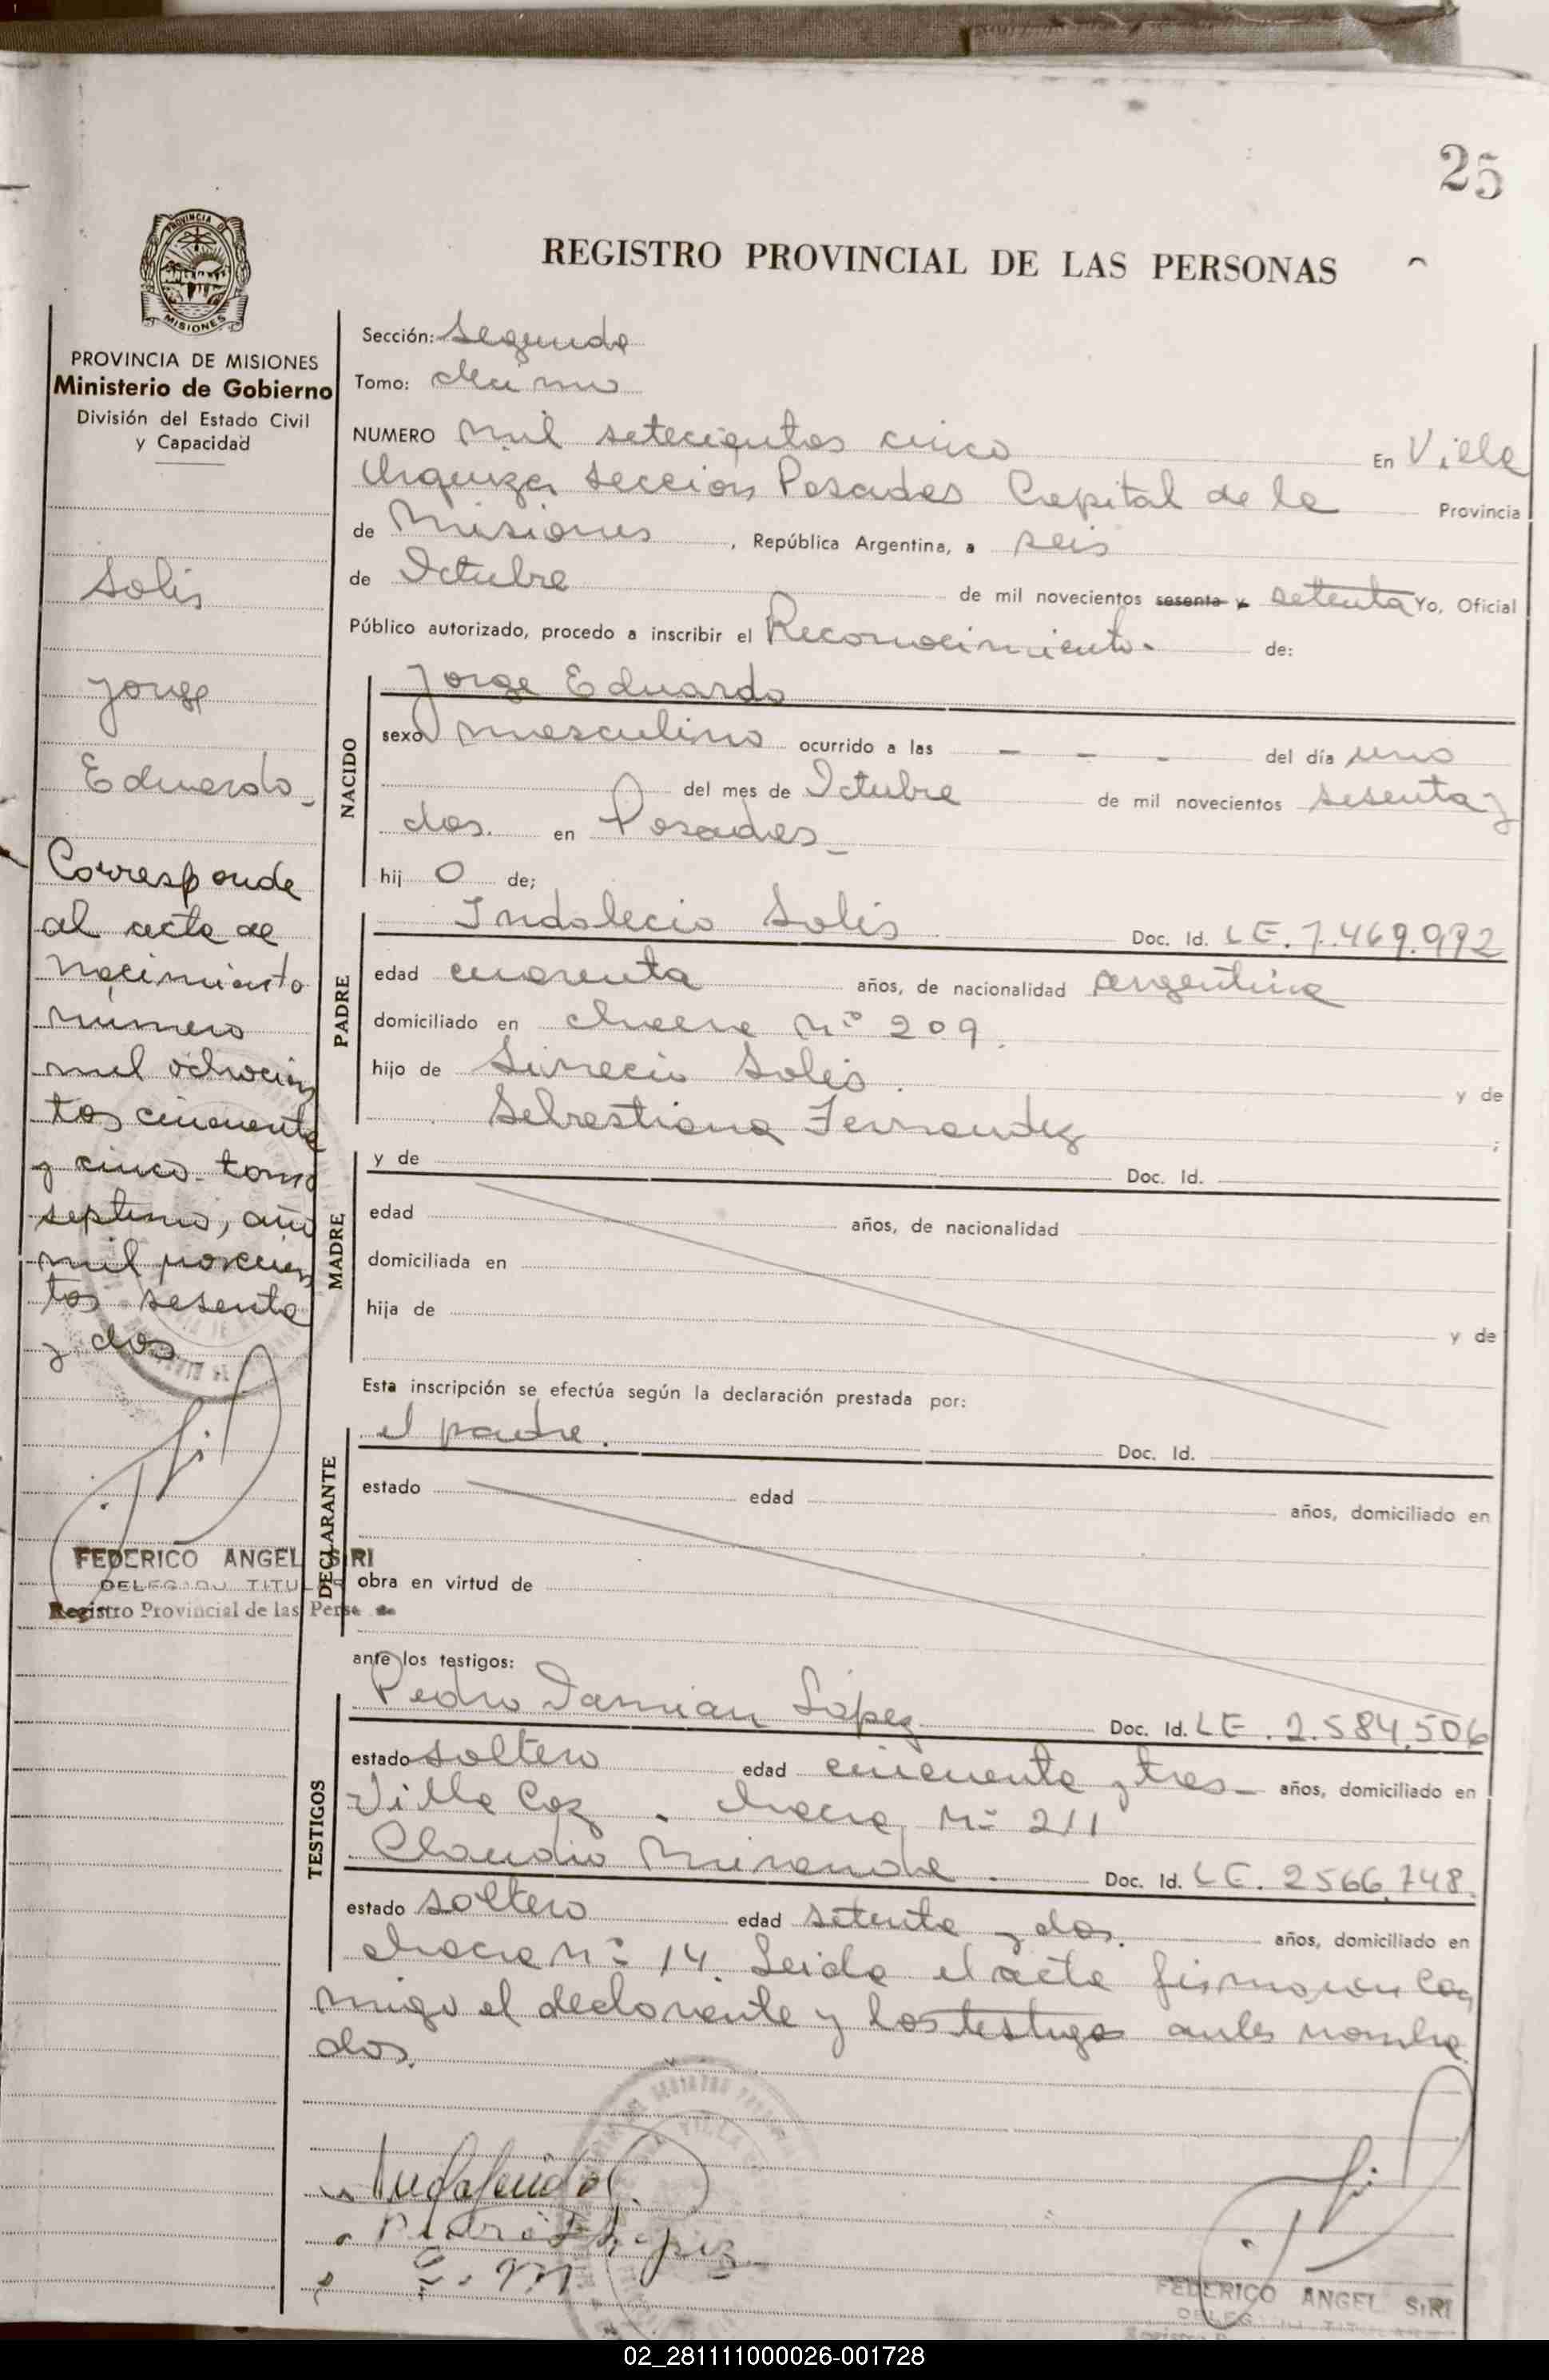 25
REGISTRO PROVINCIAL DE LAS PERSONAS
PROVINCIA DE MISIONES
MISIONES
PROVINCIA DE MISIONES
Ministerio de Gobierno
División del Estado Civil
y Capacidad
Solis
Jorge
Eduardo
Corresponde
al acta de
nacimiento
número
mil ochocien
tos cincuenta
y cinco tomo
septimo, año
mil novecien
tos sesenta
y dos
FEDERICO ANGEL SIRI
DELEGADO TITULAR
Registro Provincial de las Perso
Sección: Segunda
Tomo: décimo
NUMERO Mil setecientos cinco En Villa
Urquiza sección Posadas Capital de la Provincia
de Misiones, República Argentina, a seis
de Octubre de mil novecientos sesenta y setenta Yo, Oficial
Público autorizado, procedo a inscribir el Reconocimiento. de:
NACIDO
Jorge Eduardo
sexo masculino ocurrido a las - - - del día uno
del mes de Octubre de mil novecientos sesenta y
dos. en Posadas
hij o de;
PADRE
Indalecio Solis Doc. Id. LE. 7.469.992
edad cuarenta años, de nacionalidad argentina
domiciliado en chacra Nº 209.
hijo de Solis. y de
Sebastiana Fernandez ;
MADRE
y de Doc. Id.
edad años, de nacionalidad
domiciliada en
hija de y de
Esta inscripción se efectúa según la declaración prestada por:
DECLARANTE
el padre. Doc. Id.
estado edad años, domiciliado en
obra en virtud de
ante los testigos:
TESTIGOS
Pedro Damian López Doc. Id. LE. 2.584.506
estado soltero edad cincuenta y tres años, domiciliado en
Villa Coz. chacra Nº 211
Claudio Miranda. Doc. Id. LE. 2566.748.
estado soltero edad setenta y dos. años, domiciliado en
chacra Nº 14. Leida el acta firmaron con
migo el declarante y los testigos antes nombra
dos.
FEDERICO ANGEL SIRI
02_281111000026-001728